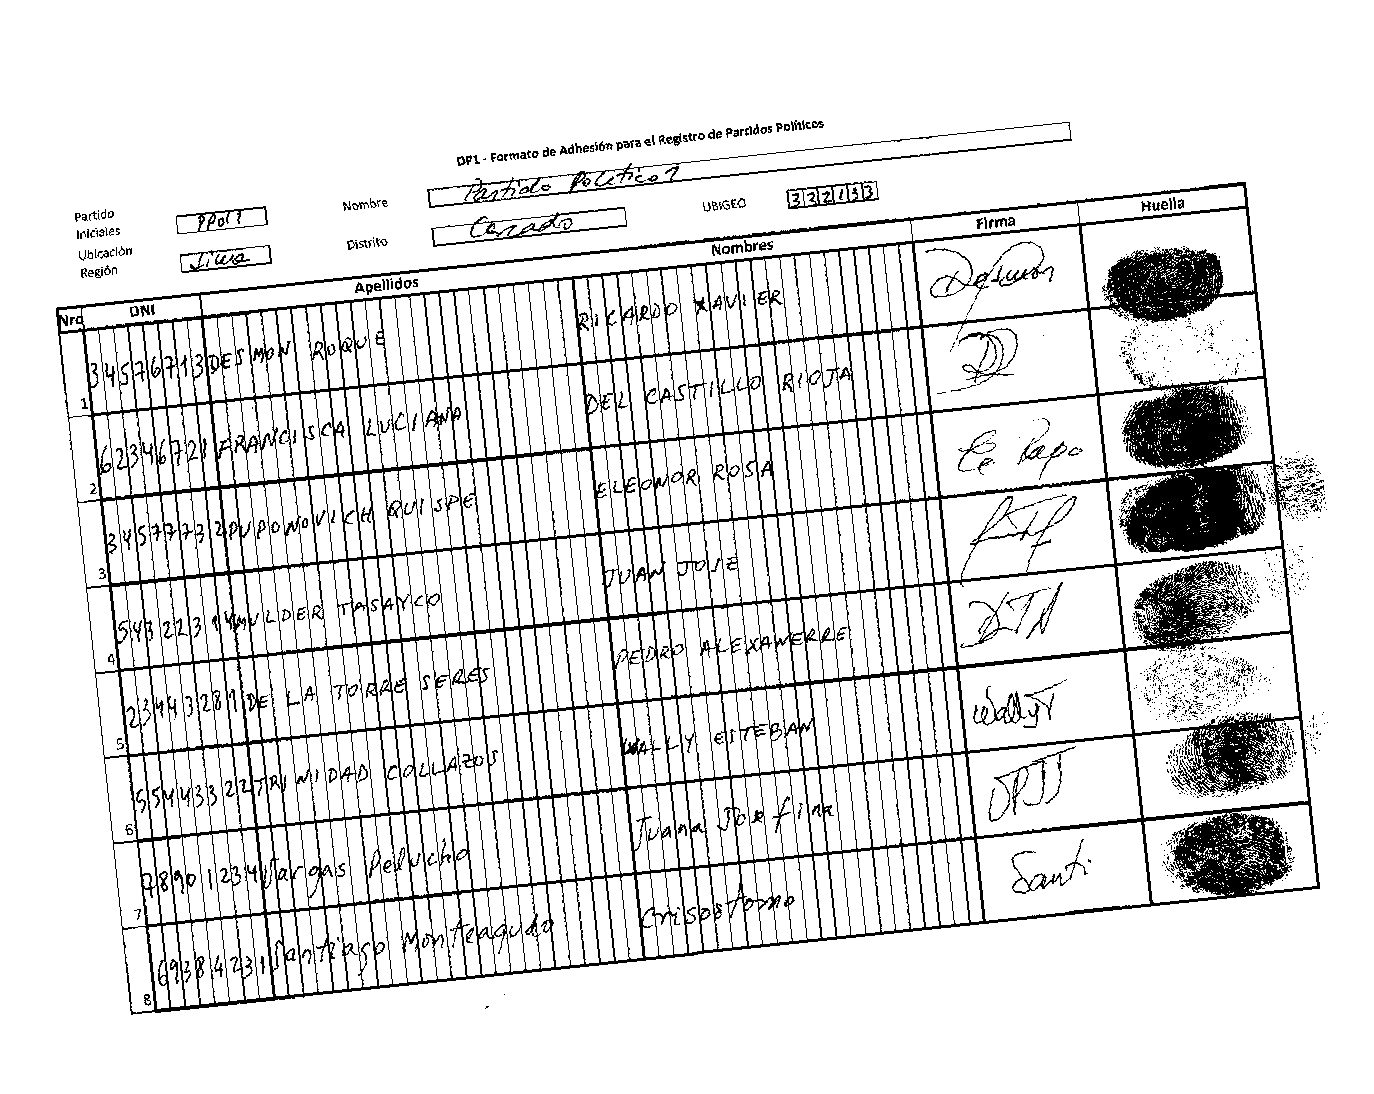 DP1 - Formato de Adhesión para el Registro de Partidos Políticos
Partido Nombre Partido Politico 1
Iniciales PPol1 UBIGEO 332133
Ubicación Distrito Cercado
Región Lima
Nro DNI Apellidos Nombres Firma Huella
1 34576713 DESMON ROQUE RICARDO XAVIER Desmon
2 62346721 FRANCISCA LUCIANA DEL CASTILLO RIOJA
3 34577732 PUPONOVICH QUISPE ELEONOR ROSA
4 54322314 MULDER TASAYCO JUAN JOSE
5 23443281 DE LA TORRE SERES PEDRO ALEXANERRE
6 55443322 TRINIDAD COLLAZOS WALLY ESTEBAN WallyT
7 78901234 Vargas Pelucho Juana Josefina
8 69384231 Santiago Monteagudo Crisostomo Santi